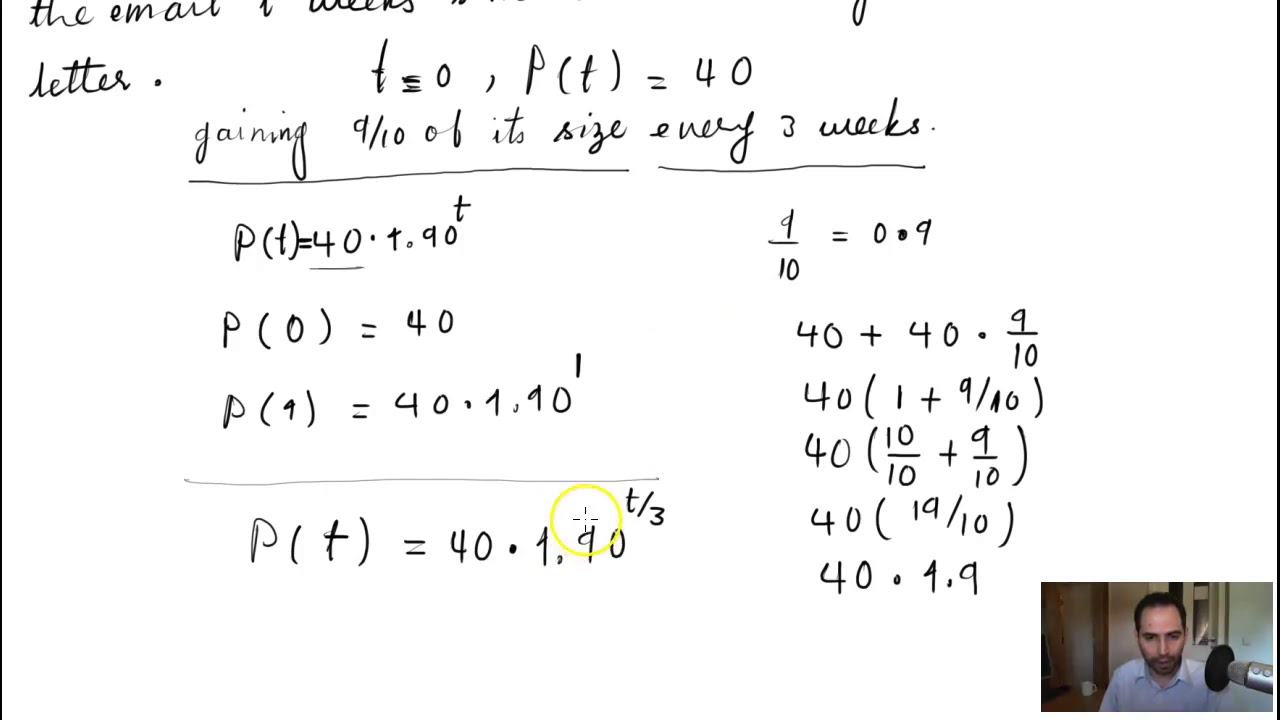 the email t weeks
letter.
t=0, P(t) = 40
gaining 9/10 of its size every 3 weeks.
P(t)=40·1.90^t
P(0) = 40
P(1) = 40·1.90^1
P(t) = 40·1.90^t/3
9/10 = 0.9
40 + 40 · 9/10
40(1 + 9/10)
40(10/10 + 9/10)
40(19/10)
40 · 1.9